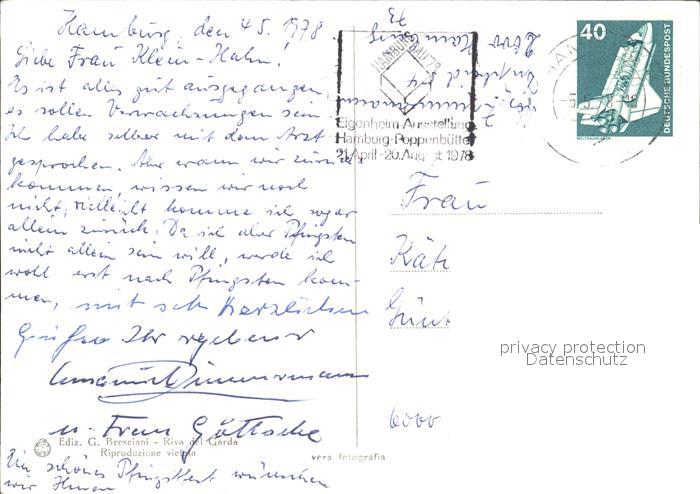 Hamburg, den 4.5.1978.
Liebe Frau Klein-Hahn!
Es ist alles gut ausgegangen,
es sollen Verwachsungen sein.
Ich habe selber mit dem Arzt
gesprochen. Nur wann wir zurück
kommen, wissen wir noch
nicht, vielleicht komme ich sogar
allein zurück. Da ich aber Pfingsten
nicht allein sein will, werde ich
wohl erst nach Pfingsten kom-
men, mit sehr herzlichen
Grüßen Ihr ergebener
Zimmermann
u. Frau Göttsche
Ediz. G. Bresciani - Riva del Garda
Riproduzione vietata
Ein schönes Pfingstfest wünschen
wir Ihnen
vera fotografia
2000 Hamburg
73
HAMBURG BAU 78
Eigenheim-Ausstellung
Hamburg-Poppenbüttel
21. April - 20. August 1978
40
DEUTSCHE BUNDESPOST
WELTRAUMLABOR
Frau
Kät
Günt
6000
privacy protection
Datenschutz